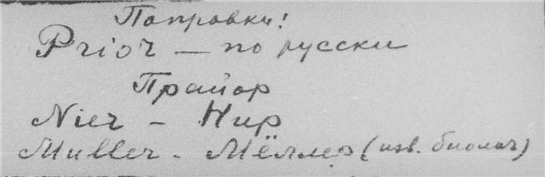 Поправки!
Prior — по русски
Прайор
Nier - Нир
Muller - Мёллер (изв. биолог)